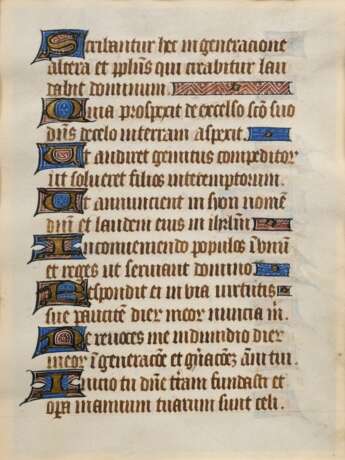 Scribantur hec in generacione
altera et pplus qui creabitur lau
dabit dominum.
Quia prospexit de excelso sco suo
dns de celo in terram aspexit.
Ut audiret gemitus compeditor
ut solueret filios interemptorum.
Ut annuncient in syon nomen
dni et laudem eius in ihrlm
In conueniendo populos i unu
et reges ut seruiant domino
Respondit ei in via uirtutis
sue paucitate dier meor nuncia m.
Ne reuoces me i dimidio dier
meor i generacoe et gnacoez anni tui.
Inicio tu dne tram fundasti et
opa manuum tuarum sunt celi.